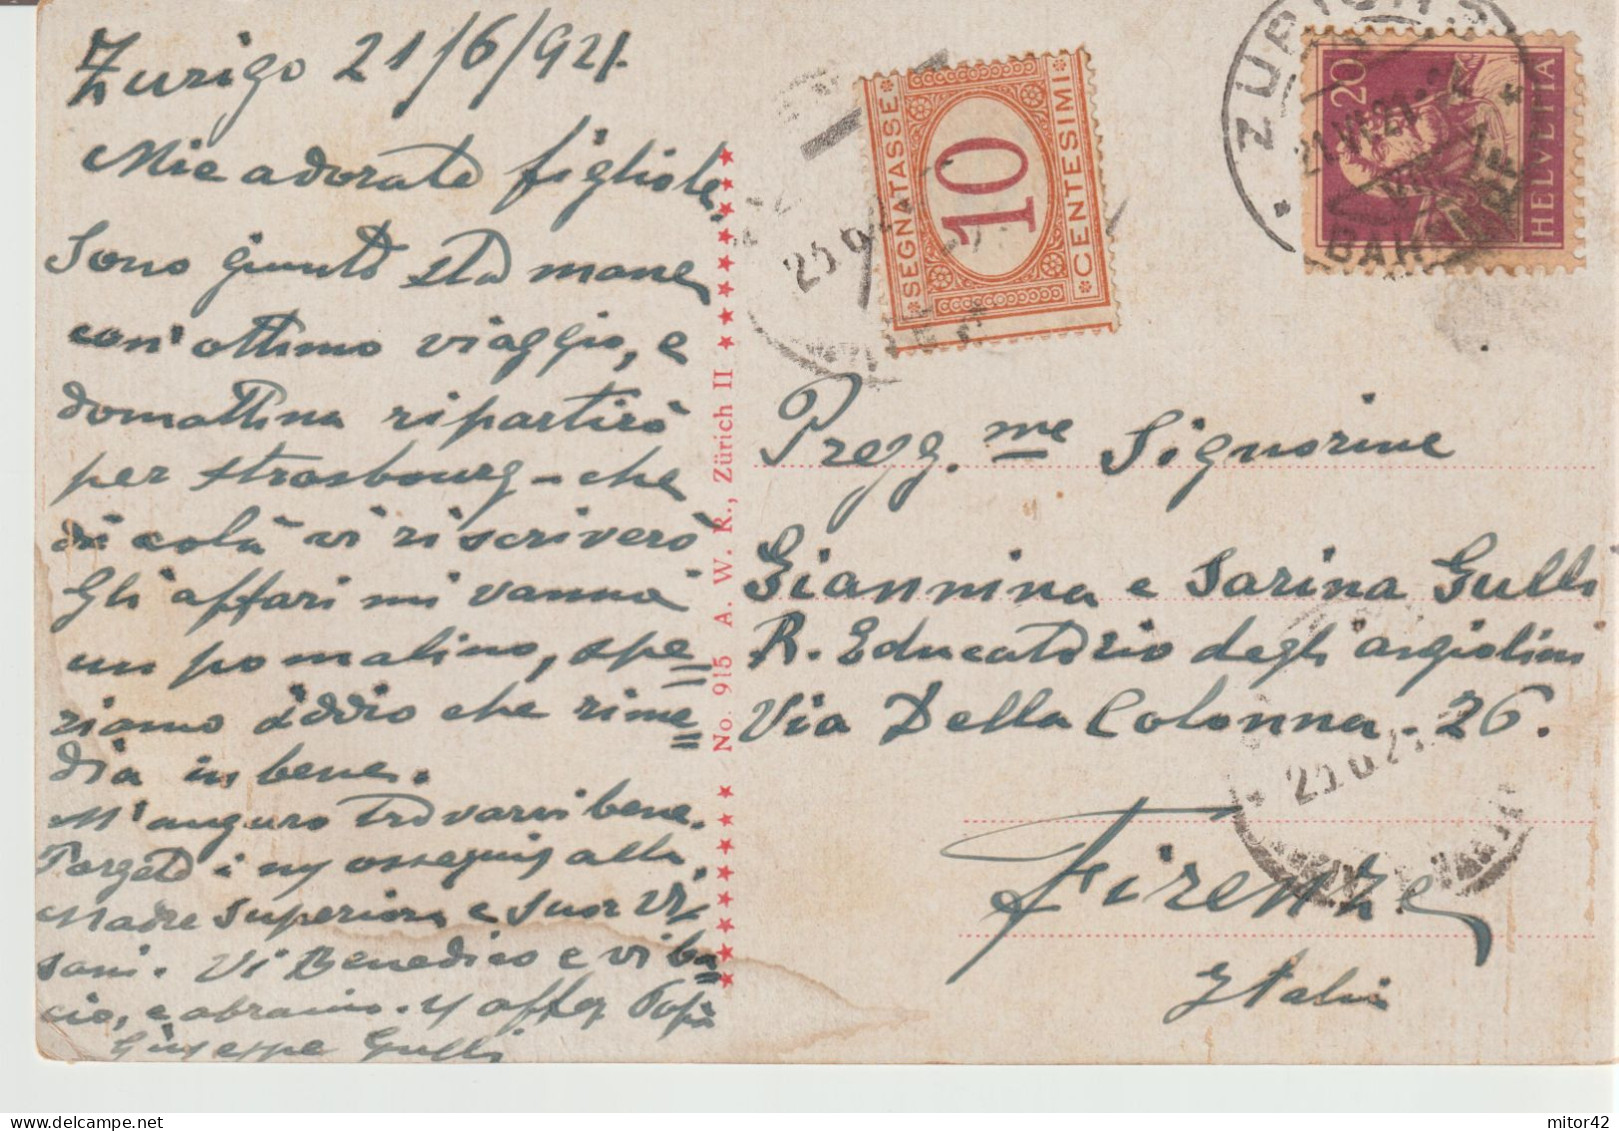 Zurigo 21/6/921.
Mie adorate figliole,
Sono giunto sta mane
con' ottimo viaggio, e
domattina ripartirò
per Strasbourg - che
di colà vi riscriverò
Gli affari mi vanno
un po malino, spe=
riamo iddio che rime=
dia in bene.
M'auguro trovarvi bene.
Porgete i mj ossequij alla
Madre Superiora e Suor Vi=
sani. Vi Benedico e vi ba=
cio, e abraccio. Y affez Papà
Giuseppe Gulli
No. 915 A. W. K., Zürich II
SEGNATASSE
10
CENTESIMI
20
HELVETIA
ZÜRICH
21.VI.21
BAHNHOF
Pregg.me Signorine
Giannina e Sarina Gulli
R. Educatorio degli angiolini
Via Della Colonna - 26.
Firenze
Italia
mitor42